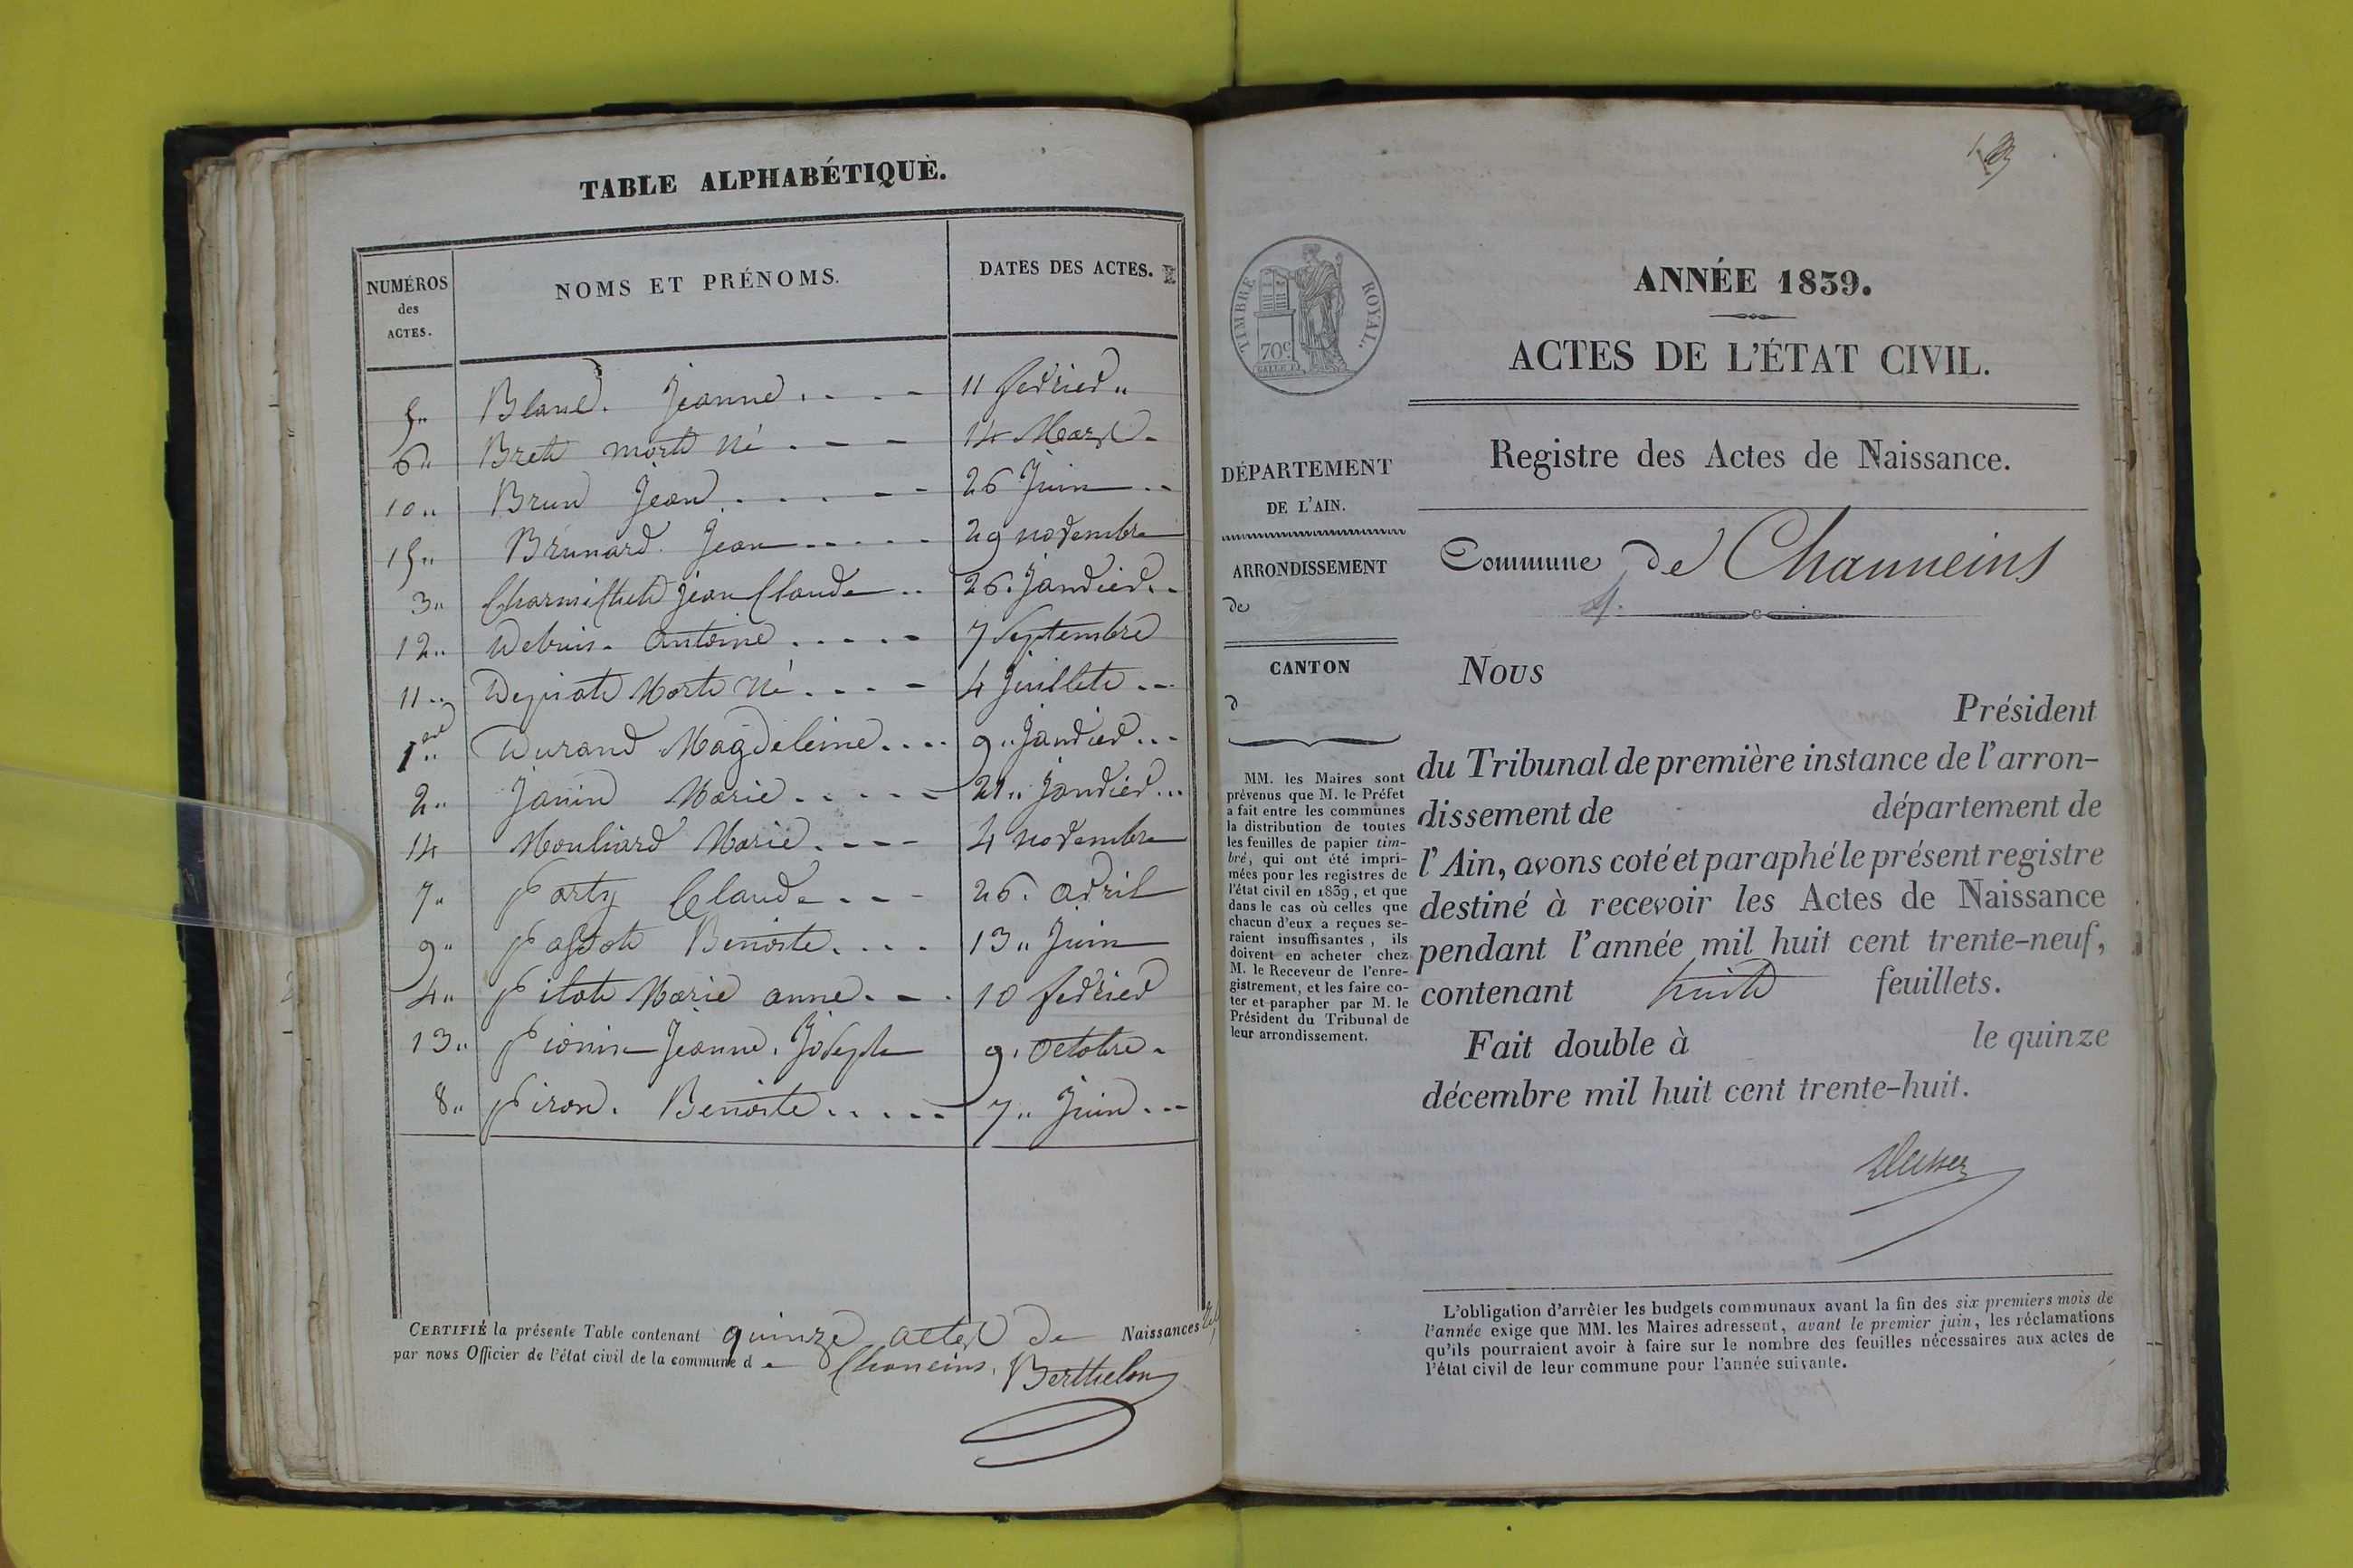 TABLE ALPHABÉTIQUE.
NUMÉROS des ACTES.
NOMS ET PRÉNOMS.
DATES DES ACTES.
5 Blanc. Jeanne 11 février
6 Bret mort Né 14 Mars
10 Brun Jean 26 Juin
15 Brunard Jean 29 novembre
3 Jean Claude 26 Janvier
12 Debuis Antoine 7 Septembre
11 Mort Né 4 Juillet
1er Durand Magdeleine 9 Janvier
2 Janin Marie 21 Janvier
14 Mouliard Marie 4 novembre
7 Party Claude 26 avril
9 Benoite 13 Juin
4 Pilat Marie anne 10 février
13 Pionin Jeanne Joseph 9 Octobre
8 Piron. Benoite 7 Juin
CERTIFIÉ la présente Table contenant quinze actes de Naissances
par nous Officier de l'état civil de la commune de Chaneins. Berthelon
ANNÉE 1839.
ACTES DE L'ÉTAT CIVIL.
TIMBRE ROYAL.
70c
Registre des Actes de Naissance.
DÉPARTEMENT
DE L'AIN.
ARRONDISSEMENT
de
CANTON
d
MM. les Maires sont
prévenus que M. le Préfet
a fait entre les communes
la distribution de toutes
les feuilles de papier tim-
bré, qui ont été impri-
mées pour les registres de
l'état civil en 1839, et que
dans le cas où celles que
chacun d'eux a reçues se-
raient insuffisantes, ils
doivent en acheter chez
M. le Receveur de l'enre-
gistrement, et les faire co-
ter et parapher par M. le
Président du Tribunal de
leur arrondissement.
Commune de Channeins
Nous
Président
du Tribunal de première instance de l'arron-
dissement de département de
l'Ain, avons coté et paraphé le présent registre
destiné à recevoir les Actes de Naissance
pendant l'année mil huit cent trente-neuf,
contenant huit feuillets.
Fait double à le quinze
décembre mil huit cent trente-huit.
L'obligation d'arrêter les budgets communaux avant la fin des six premiers mois de
l'année exige que MM. les Maires adressent, avant le premier juin, les réclamations
qu'ils pourraient avoir à faire sur le nombre des feuilles nécessaires aux actes de
l'état civil de leur commune pour l'année suivante.